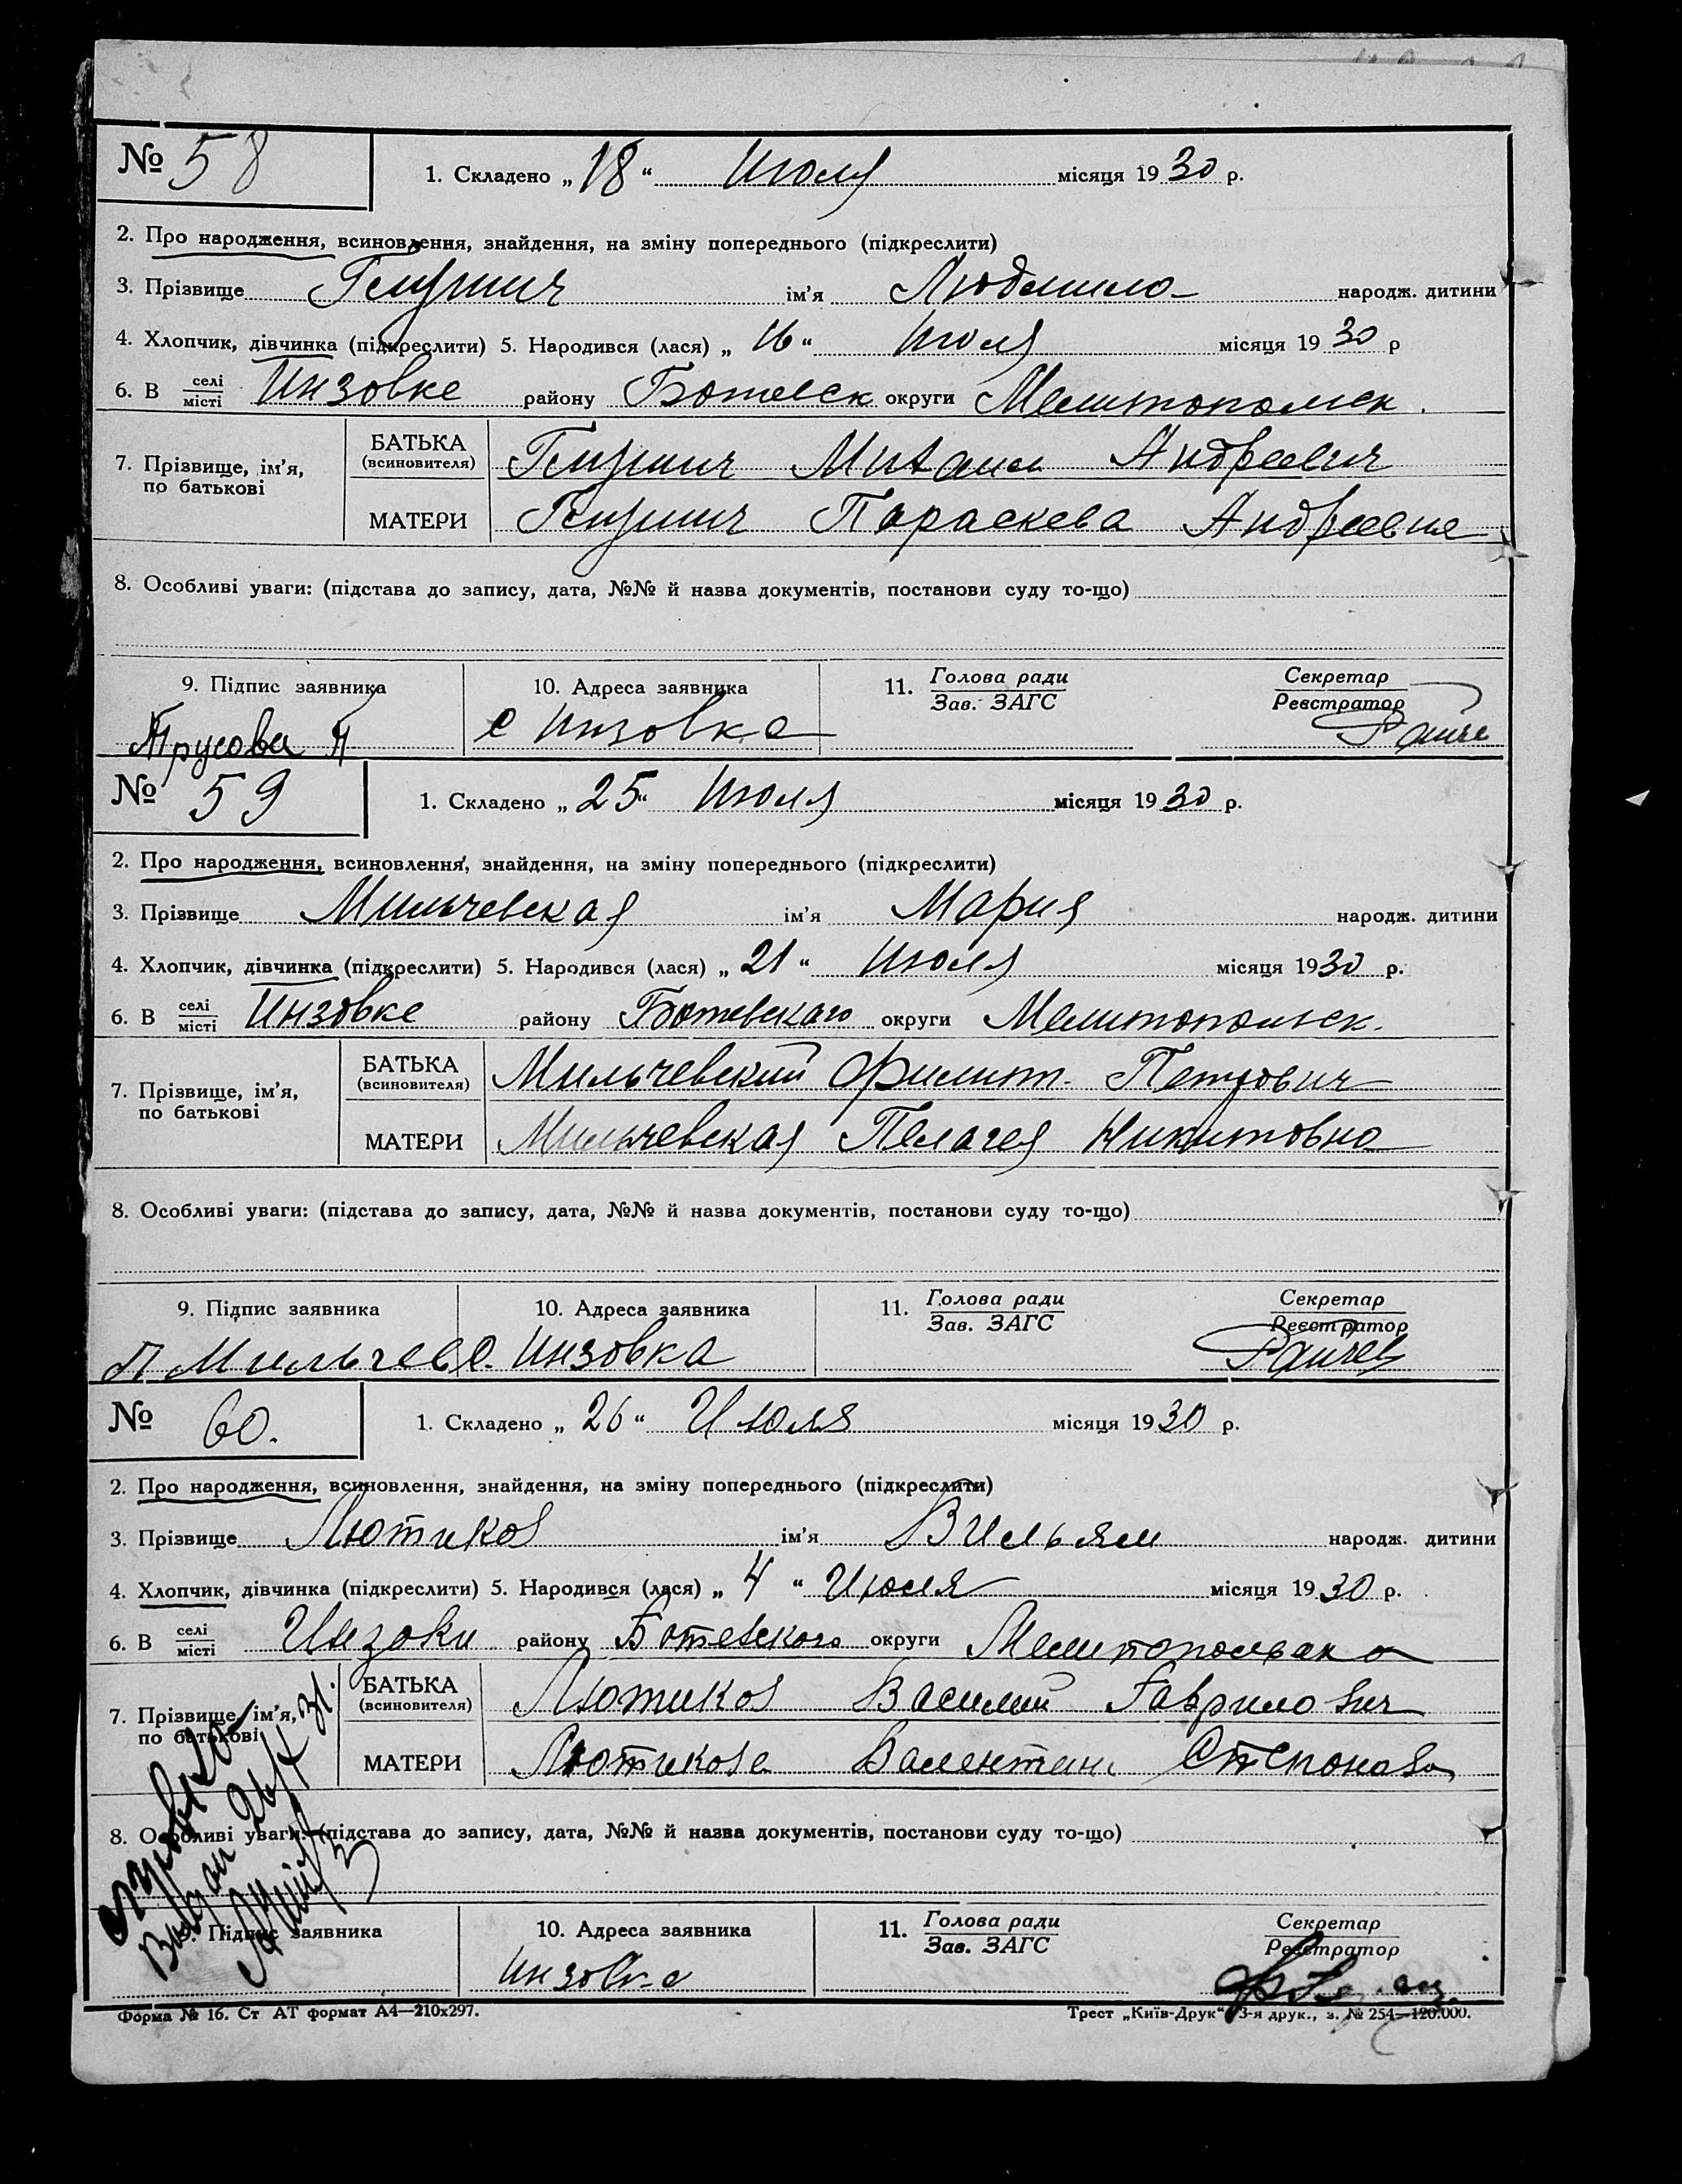 № 58
1. Складено „18“ Июля місяця 1930 р.
2. Про народження, всиновлення, знайдення, на зміну попереднього (підкреслити)
3. Прізвище ім’я Людмила народж. дитини
4. Хлопчик, дівчинка (підкреслити) 5. Народився (лася) „16“ Июля місяця 1930 р
6. В селі/місті Инзовке району Ботевск округи Мелитопольск.
7. Прізвище, ім’я, по батькові
БАТЬКА (всиновителя) Михаил Андреевич
МАТЕРИ Параскева Андреевна
8. Особливі уваги: (підстава до запису, дата, №№ й назва документів, постанови суду то-що)
9. Підпис заявника 10. Адреса заявника 11. Голова ради/Зав. ЗАГС Секретар/Реєстратор
Трусова П с Инзовка
№ 59
1. Складено „25“ Июля місяця 1930 р.
2. Про народження, всиновлення, знайдення, на зміну попереднього (підкреслити)
3. Прізвище Мильчевская ім’я Мария народж. дитини
4. Хлопчик, дівчинка (підкреслити) 5. Народився (лася) „21“ Июля місяця 1930 р.
6. В селі/місті Инзовке району Ботевского округи Мелитопольск.
7. Прізвище, ім’я, по батькові
БАТЬКА (всиновителя) Мильчевский Филипп Петрович
МАТЕРИ Мильчевская Пелагея Никитовна
8. Особливі уваги: (підстава до запису, дата, №№ й назва документів, постанови суду то-що)
9. Підпис заявника 10. Адреса заявника 11. Голова ради/Зав. ЗАГС Секретар/Реєстратор
П Мильчев с. Инзовка Райчев
№ 60.
1. Складено „26“ Июля місяця 1930 р.
2. Про народження, всиновлення, знайдення, на зміну попереднього (підкреслити)
3. Прізвище Лютиков ім’я Вильям народж. дитини
4. Хлопчик, дівчинка (підкреслити) 5. Народився (лася) „4“ Июля місяця 1930 р.
6. В селі/місті району Ботевского округи
7. Прізвище, ім’я, по батькові
БАТЬКА (всиновителя) Лютиков Василий Гаврилович
МАТЕРИ Лютикова Валентина
8. Особливі уваги: (підстава до запису, дата, №№ й назва документів, постанови суду то-що)
9. Підпис заявника 10. Адреса заявника 11. Голова ради/Зав. ЗАГС Секретар/Реєстратор
Инзовка
Форма № 16. Ст АТ формат А4—210х297.
Трест „Київ-Друк“ 3-я друк., з. № 254—120.000.